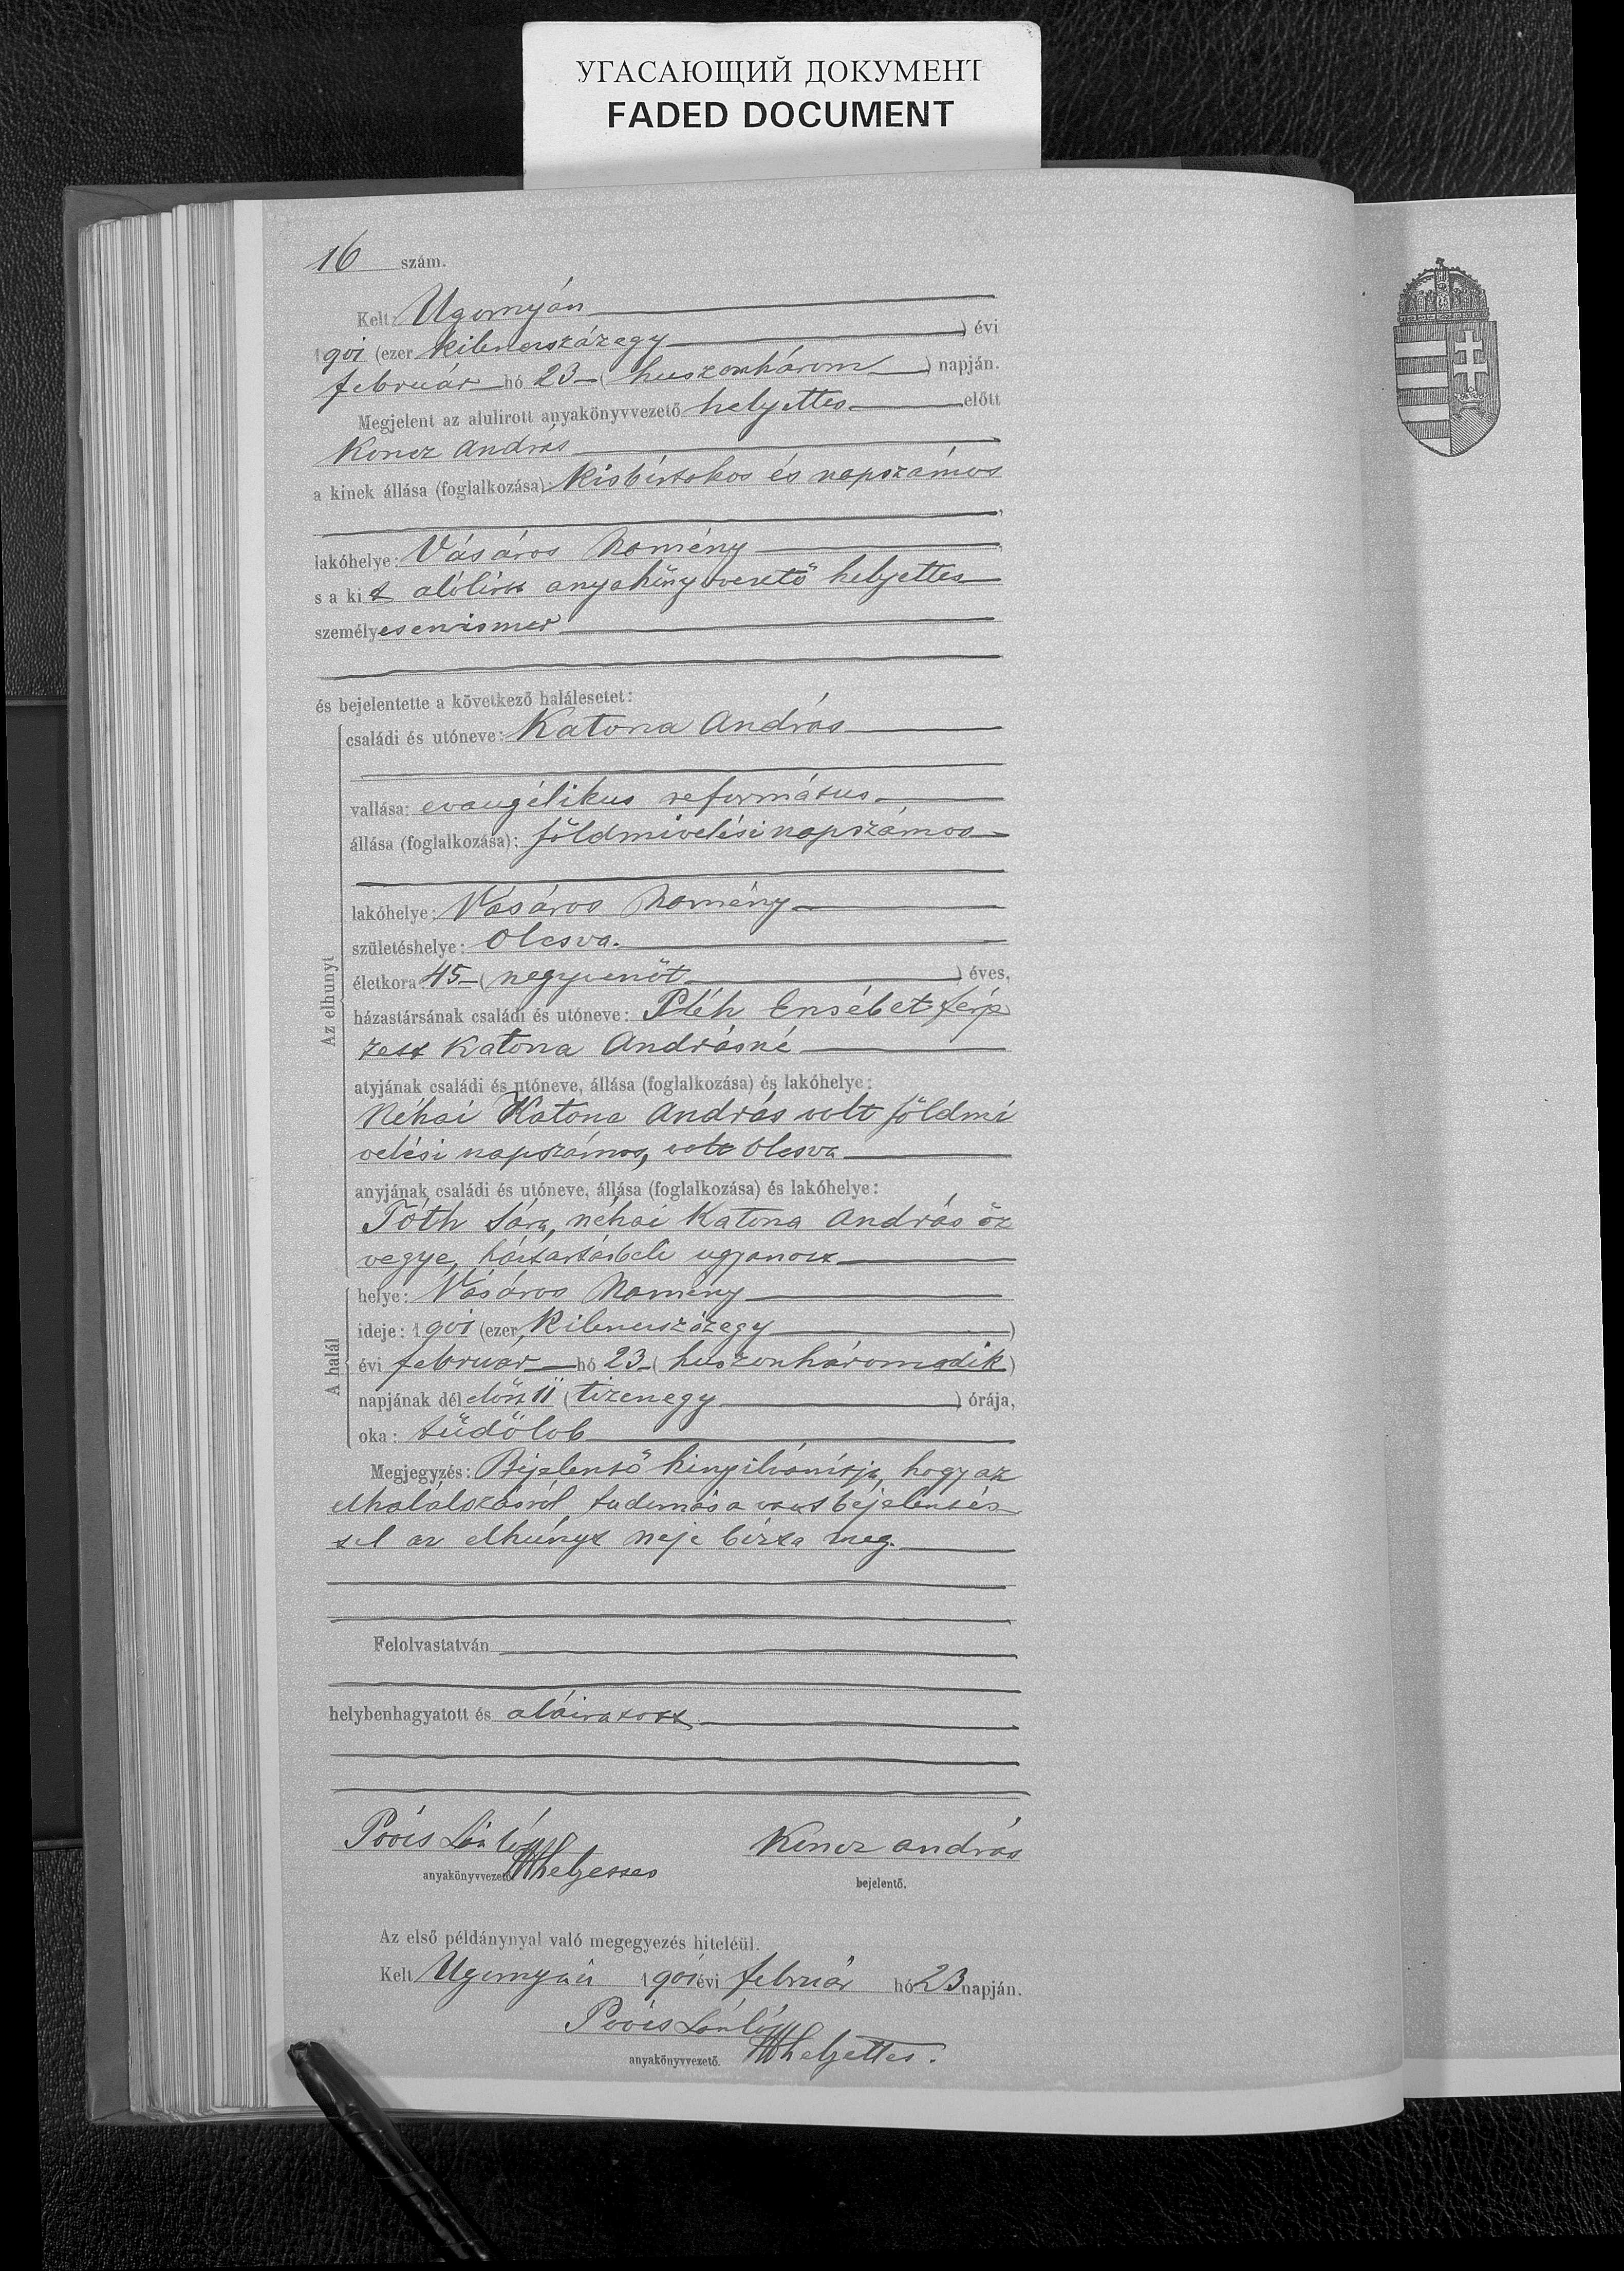 УГАСАЮЩИЙ ДОКУМЕНТ
FADED DOCUMENT
16 szám.
Kelt Ugornyán
1901 (ezer kilenczszázegy ) évi
február hó 23 (huszonhárom ) napján.
Megjelent az alulirott anyakönyvvezető helyettes előtt
Koncz András
a kinek állása (foglalkozása): kisbirtokos és napszámos
lakóhelye: Vásáros Namény
s a kit alólirott anyakönyvvezető helyettes
személyesen ismer
és bejelentette a következő halálesetet:
Az elhunyt
családi és utóneve: Katona András
vallása: evangélikus református
állása (foglalkozása): földmivelési napszámos
lakóhelye: Vásáros Namény
születéshelye: Olcsva.
életkora: 45 (negyvenöt ) éves,
házastársának családi és utóneve: Pléh Ersébet férje
zett Katona Andrásné
atyjának családi és utóneve, állása (foglalkozása) és lakóhelye:
Néhai Katona András volt földmi
velési napszámos, volt Olcsva
anyjának családi és utóneve, állása (foglalkozása) és lakóhelye:
Tóth Sára, néhai Katona András öz
vegye, háztartásbeli ugyanott
A halál
helye: Vásáros Namény
ideje: 1901 (ezer kilenczszázegy )
évi február hó 23 (huszonháromadik)
napjának dél előtt 11 (tizenegy ) órája,
oka: tüdőlob
Megjegyzés: Bejelentő kinyilvánítja, hogy az
elhalálozásról tudomása van s bejelentés
sel az elhúnyt neje bízta meg.
Felolvastatván
helybenhagyatott és aláiratott
anyakönyvvezető helyettes
Koncz andrás
bejelentő.
Az első példánynyal való megegyezés hiteléül.
Kelt Ugornyán 1901 évi február hó 23 napján.
anyakönyvvezető. helyettes.